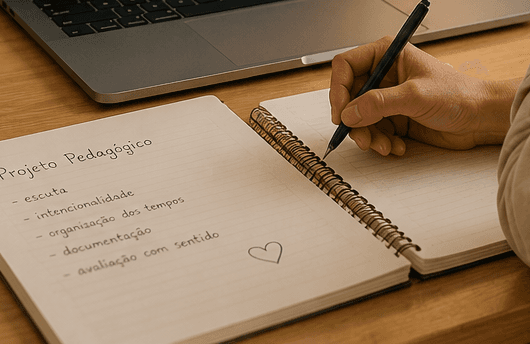 Projeto Pedagógico
- escuta
- intencionalidade
- organização dos tempos
- documentação
- avaliação com sentido